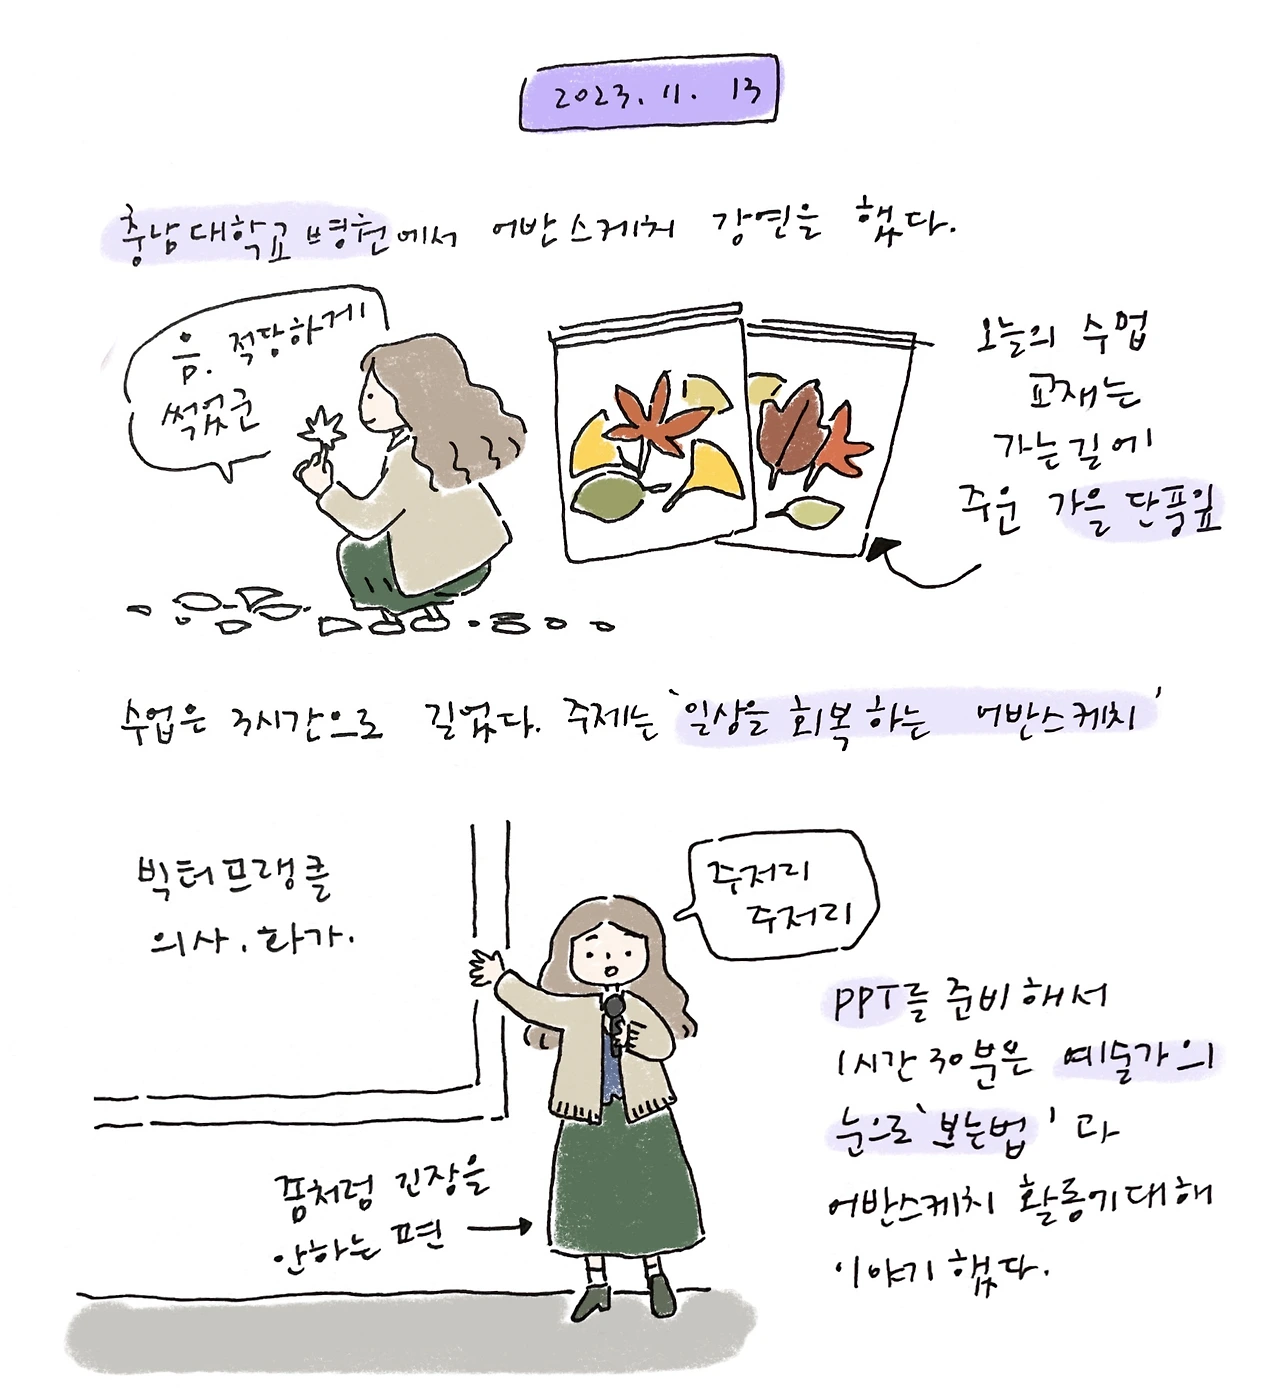 2023. 11. 13
충남대학교병원에서 어반스케치 강연을 했다.
음. 적당하게
썩었군
오늘의 수업
교재는
가는길에
주운 가을 단풍잎
수업은 3시간으로 길었다. 주제는 '일상을 회복하는 어반스케치'
빅터프랭클
의사, 화가.
주저리
주저리
PPT를 준비해서
1시간 30분은 예술가의
눈으로 '보는법'과
어반스케치 활동기대해
이야기 했다.
좀처럼 긴장을
안하는 편